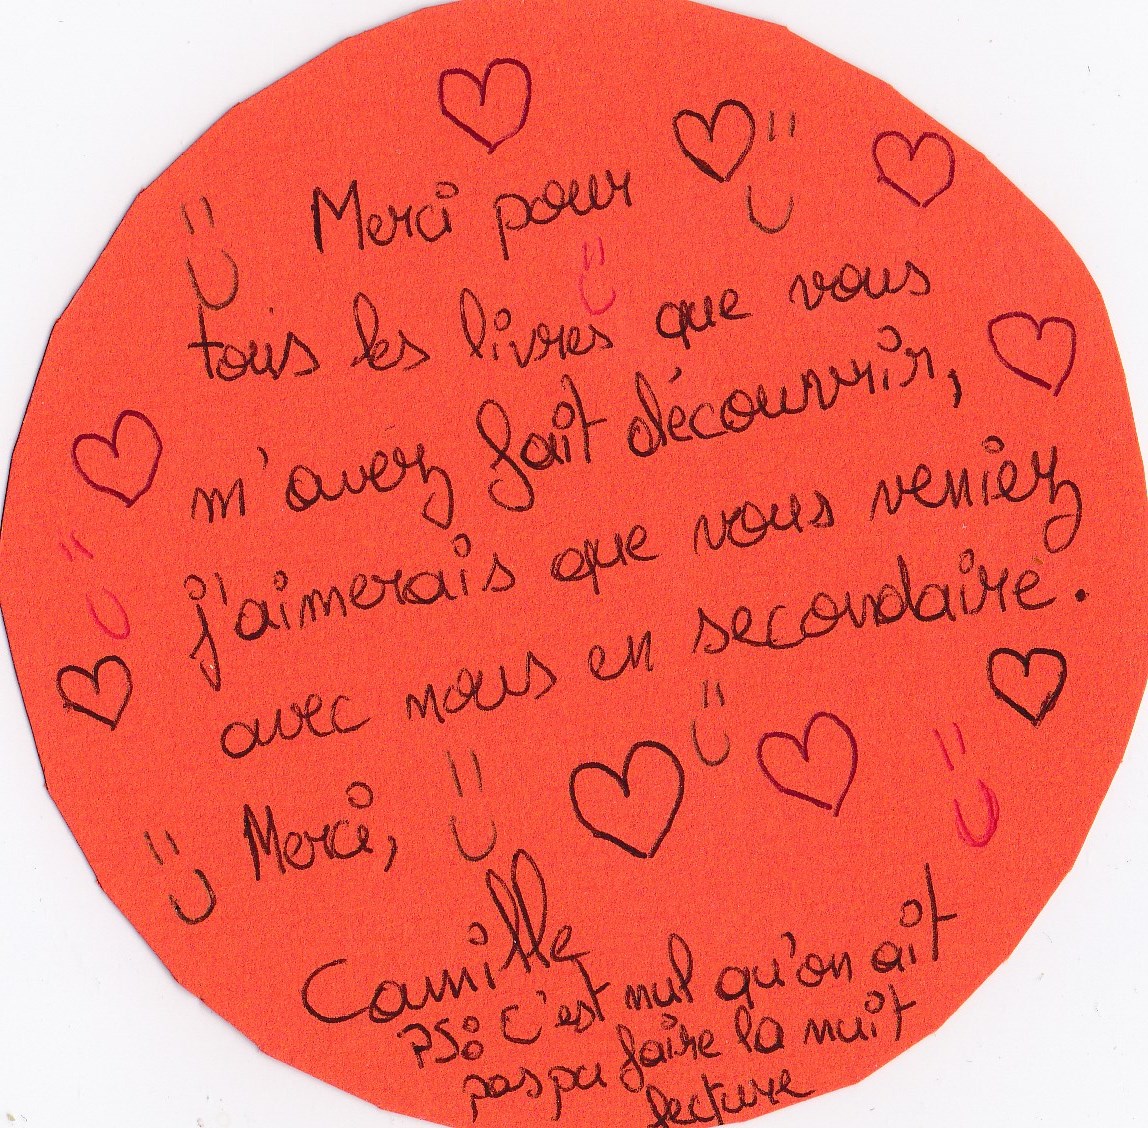 Merci pour
tous les livres que vous
m'avez fait découvrir,
j'aimerais que vous veniez
avec nous en secondaire.
Merci,
Camille
PS: C'est nul qu'on ait
pas pu faire la nuit
lecture